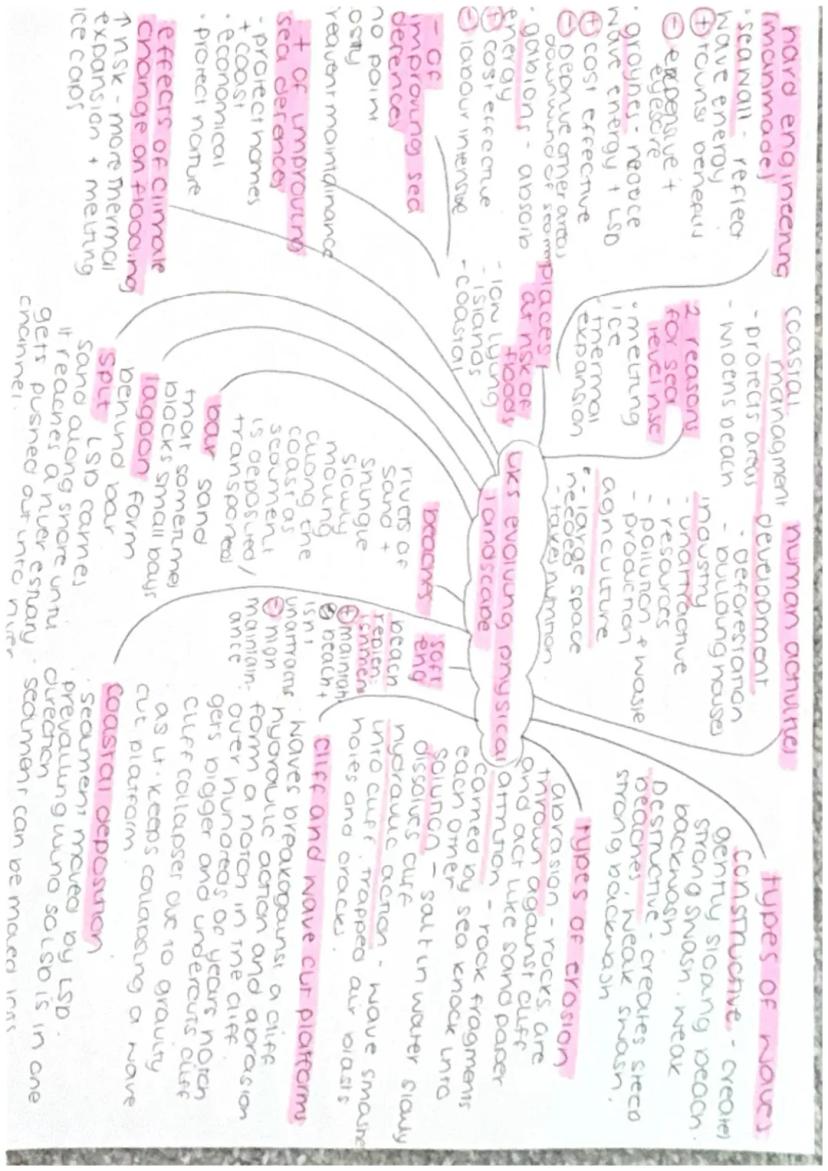 hard engineering
(manmade)
· seawall - reflect
wave energy
+ tourist benefits
- expensive +
eyesore
· groynes - reduce
wave energy + LSD
+ cost effective
- deprive other areas
downwind of sediment
· gabions - absorb
energy
+ cost effective
- labour intensive
- of
improving sea
defences
no point
costly
frequent maintainance
+ of improving
sea defences
- protect homes
+ coast
· economical
· protect nature
effects of climate
change on flooding
↑ risk - more thermal
expansion + melting
ice caps
coastal
managment
- protects areas
- widens beach
2 reasons
for sea
level rise
· melting
ice
· thermal
expansion
places
at risk of
floods
- low lying
- islands
- coastal
human activities
development
- deforestation
- building houses
industry
- unattractive
- resources
- pollution + waste
- production
agriculture
- large space
needed
- takes nutrition
UKs evolving physical
landscape
types of waves
constructive - creates
gently sloping beach.
strong swash, weak
backwash
Destructive - creates steep
beaches, weak swash,
strong backwash
types of erosion
abrasion - rocks are
thrown against cliff
and act like sand paper
attrition - rock fragments
carried by sea knock into
each other
solution - salt in water slowly
dissolves cliff
hydraulic action - wave smashes
into cliff. trapped air blasts
holes and cracks.
cliff and wave cut platforms
waves break against a cliff
hydraulic action and abrasion
form a notch in the cliff.
over hundreds of years notch
gets bigger and undercuts cliff
cliff collapses due to gravity
as it keeps collapsing a wave
cut platform.
coastal deposition
sediment moved by LSD.
prevailing wind so LSD is in one
direction
sediment can be moved
soft
eng
beach
replen-
ishment
+ maintain
beach +
isnt
unattractive
- high
maintain-
ance
beaches
rivers of
sand +
shingle
slowly
moving
along the
coast as
sediment
is deposited /
transported
bar sand
that sometimes
blocks small bays
lagoon form
behind bar
spit LSD carries
sand along shore until
it reaches a river estuary.
gets pushed out into river
channel.